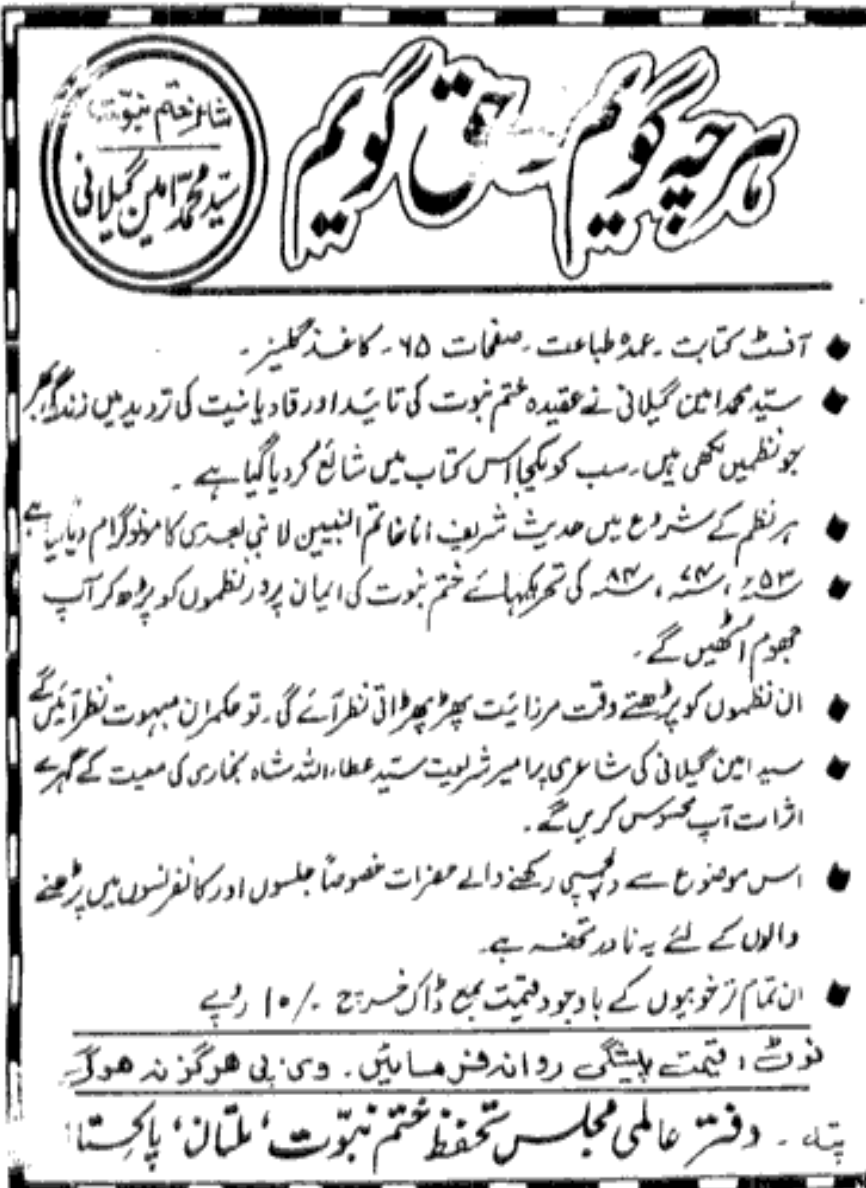 هرچہ گویم - حق گویم
شاعر ختم نبوت
سیّد محمّد امین گیلانی
آفسٹ کتابت - عمدہ طباعت - صفحات ۶۵ - کاغذ گلیز -
سیّد محمد امین گیلانی نے عقیدہ ختم نبوت کی تائید اور قادیانیت کی تردید میں زندگی بھر
جو نظمیں لکھی ہیں - سب کو یکجا اس کتاب میں شائع کر دیا گیا ہے -
ہر نظم کے شروع میں حدیث شریف انا خاتم النبیین لا نبی بعدی کا مونوگرام دیا گیا ہے
۵۳ء ، ۷۴ء ، ۸۴ء کی تحریکہائے ختم نبوت کی ایمان پرور نظموں کو پڑھ کر آپ
جھوم اُٹھیں گے -
ان نظموں کو پڑھتے وقت مرزائیت پھڑپھڑاتی نظر آئے گی - تو حکمران مبہوت نظر آئیں گے
سید امین گیلانی کی شاعری پر امیر شریعت سیّد عطاء اللہ شاہ بخاری کی معیت کے گہرے
اثرات آپ محسوس کریں گے -
اس موضوع سے دلچسپی رکھنے والے حضرات خصوصاً جلسوں اور کانفرنسوں میں پڑھنے
والوں کے لئے یہ نادر تحفہ ہے -
ان تمام تر خوبیوں کے باوجود قیمت بمع ڈاک خرچ ۱۰/- روپے
نوٹ : قیمت پیشگی روانہ فرمائیں - وی پی ھرگز نہ ھوگی -
پتہ - دفتر عالمی مجلس تحفظ ختم نبوّت ، ملتان ، پاکستان